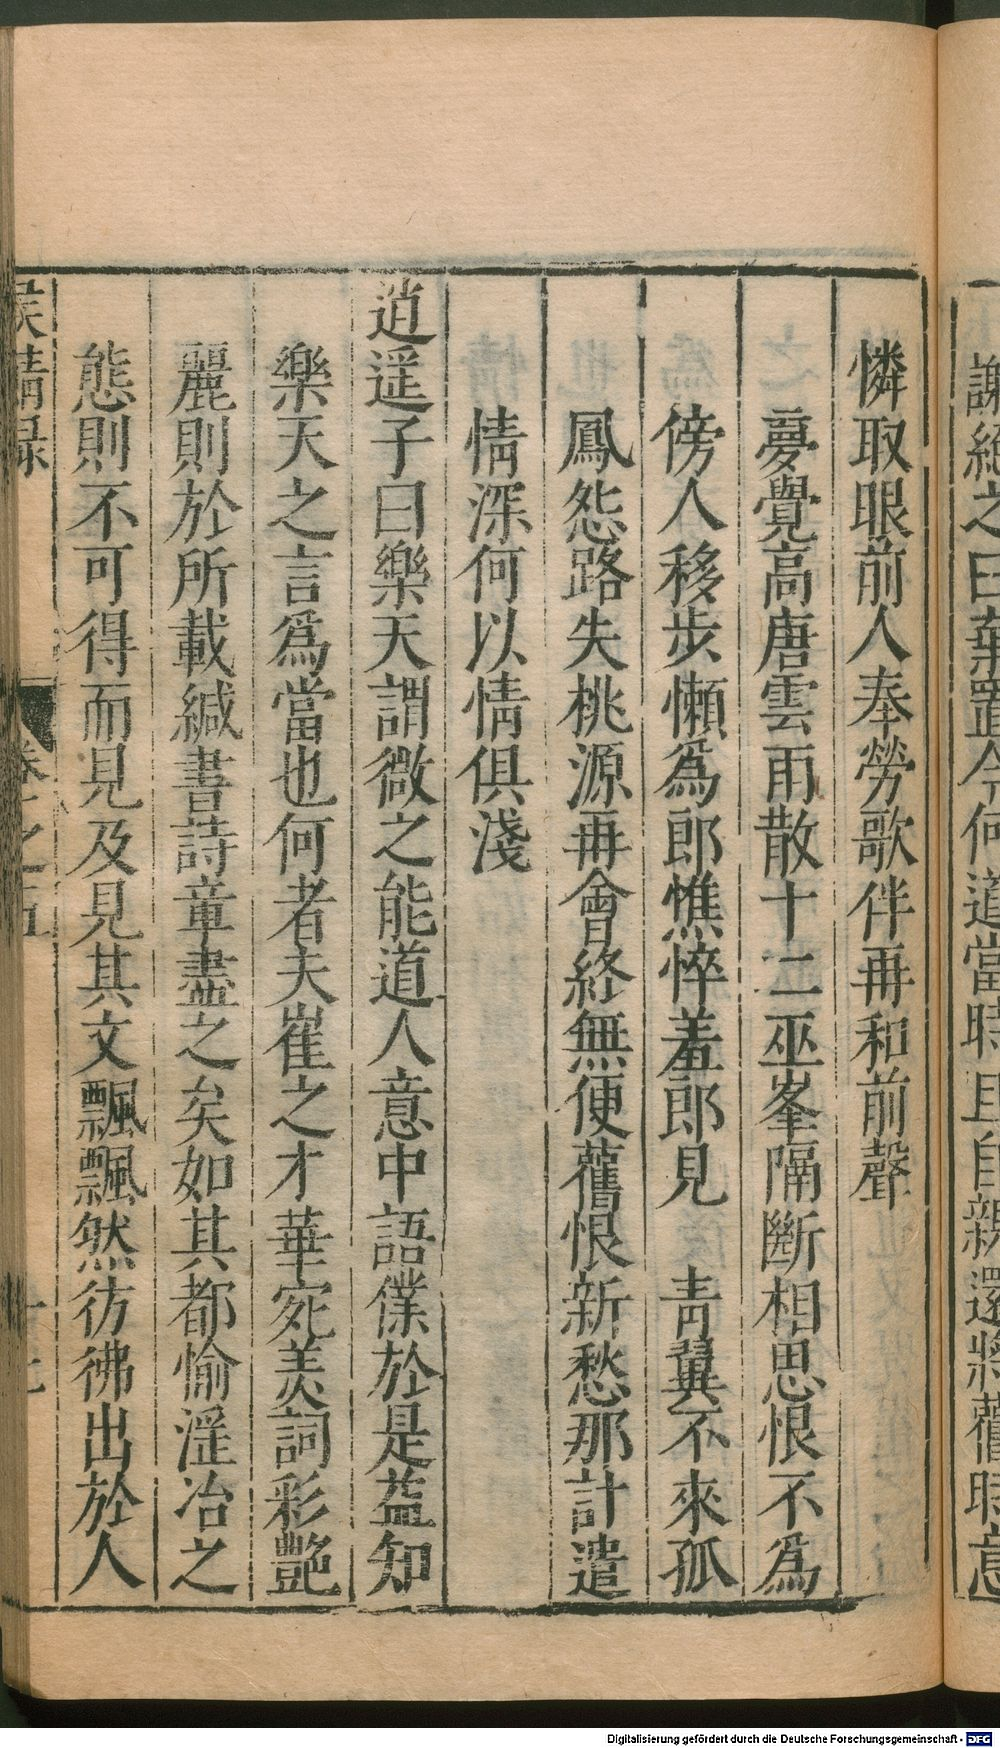 謝絕之曰棄置今何道當時且自親還將舊時意
憐取眼前人奉勞歌伴再和前聲
夢覺高唐雲雨散十二巫峯隔斷相思恨不爲
傍人移步懶爲郎憔悴羞郎見　靑翼不來孤
鳳怨路失桃源再會終無便舊恨新愁那計遣
情深何以情俱淺
逍遥子曰樂天謂微之能道人意中語僕於是葢知
樂天之言爲當也何者夫崔之才華宛美詞彩艷
麗則於所載緘書詩章盡之矣如其都愉淫冶之
態則不可得而見及見其文飄飄然彷彿出於人
侯鯖錄　卷之五　十七
Digitalisierung gefördert durch die Deutsche Forschungsgemeinschaft - DFG